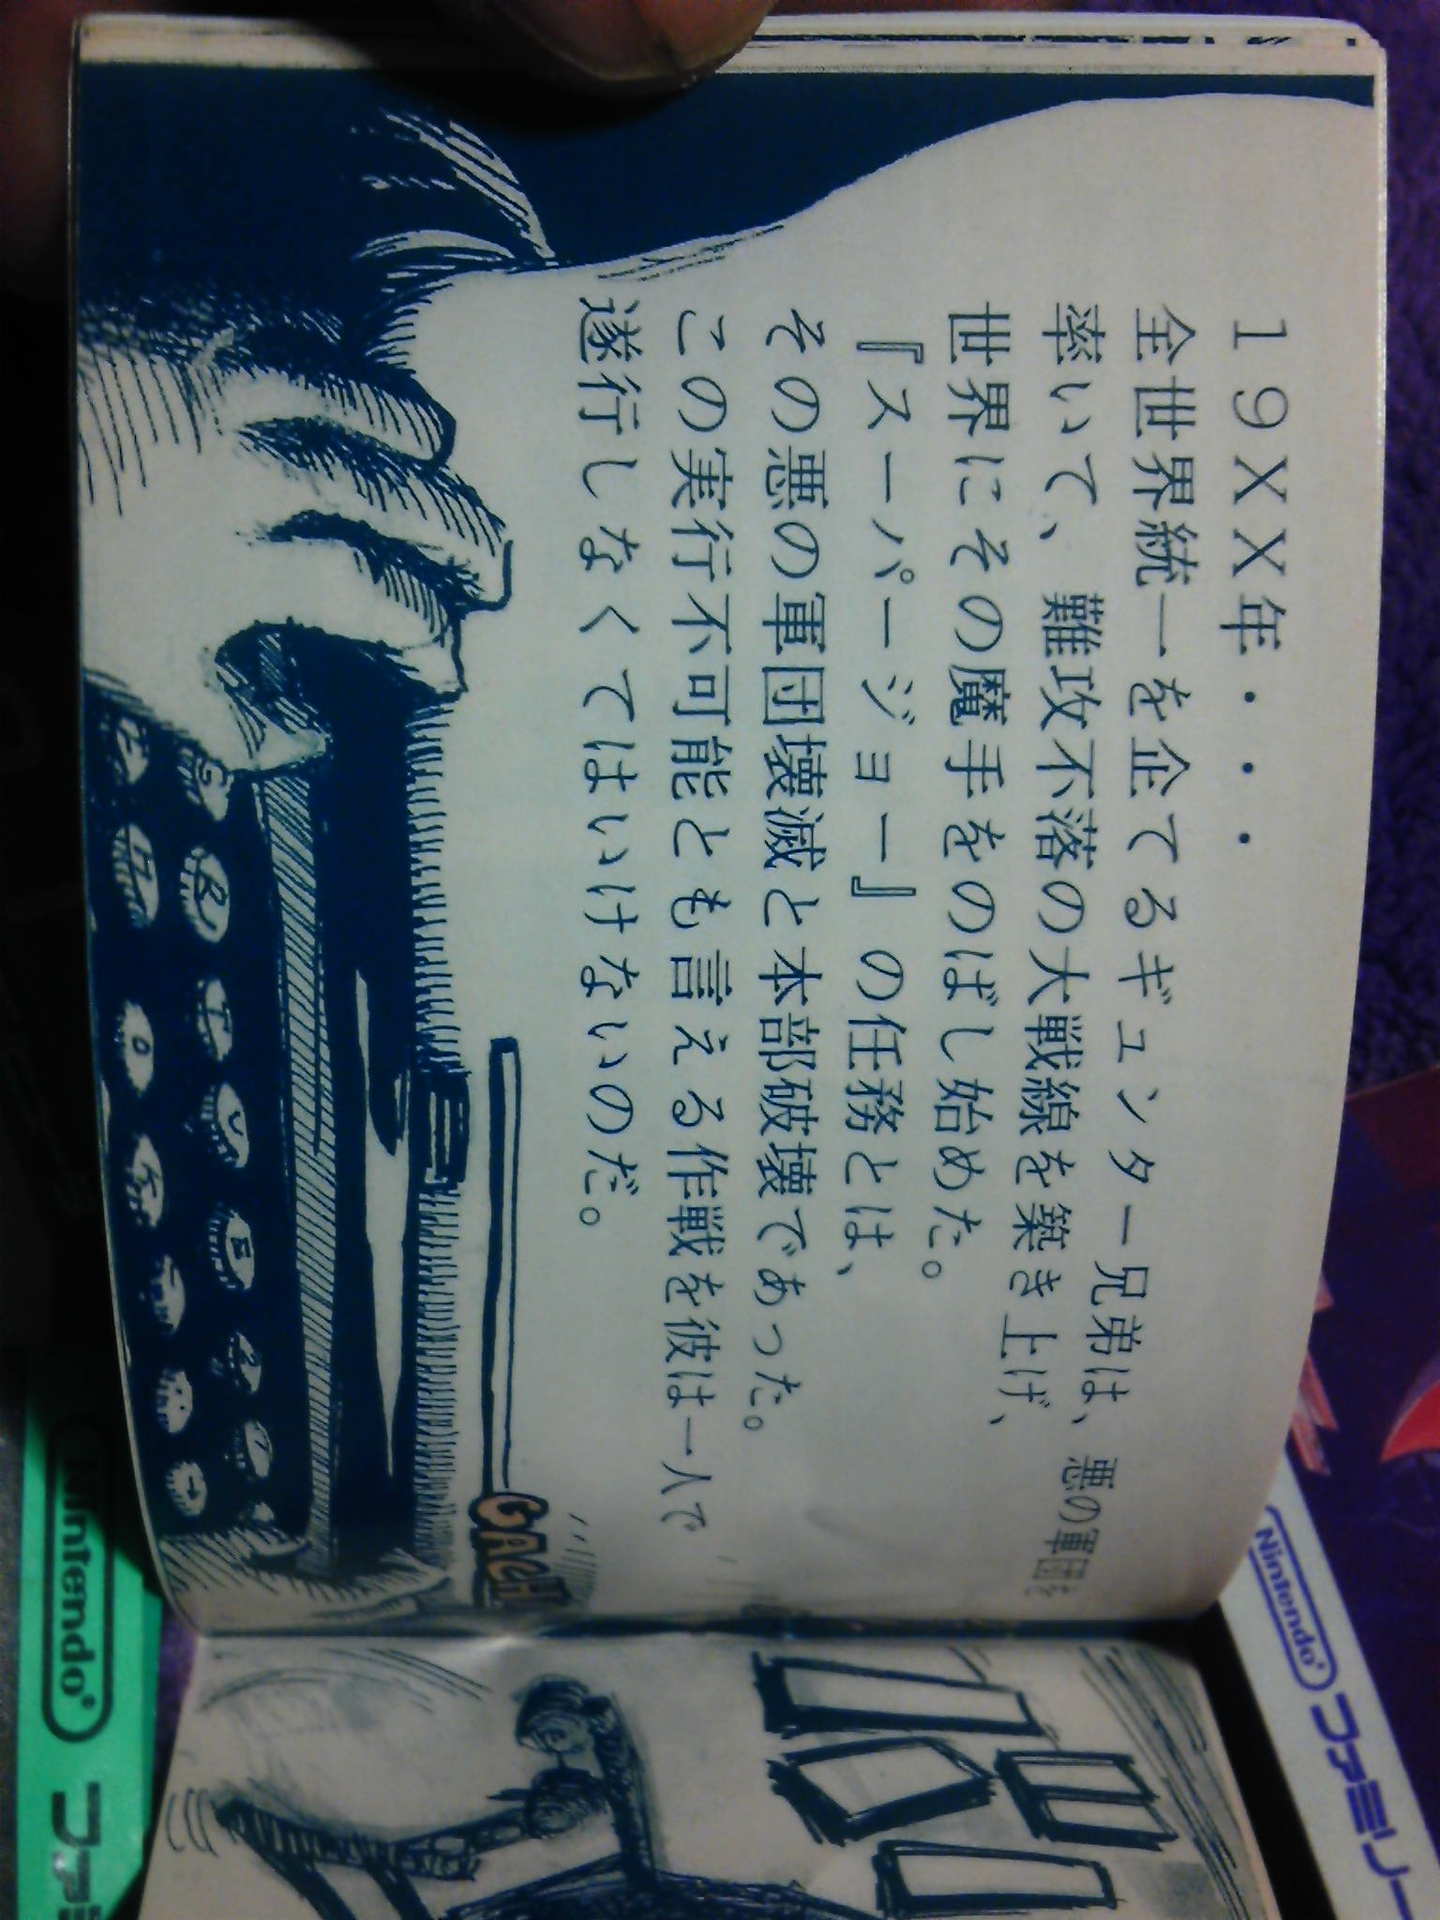 19XX年・・・
全世界統一を企てるギュンター兄弟は、悪の軍団を
率いて、難攻不落の大戦線を築き上げ、
世界にその魔手をのばし始めた。
『スーパージョー』の任務とは、
その悪の軍団壊滅と本部破壊であった。
この実行不可能とも言える作戦を彼は一人で
遂行しなくてはいけないのだ。
GACH
Nintendo
ファミリー
Nintendo
ファミ